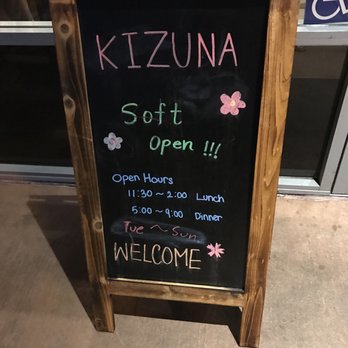 KIZUNA
Soft
Open !!!
Open Hours
11:30 ~ 2:00 Lunch
5:00 ~ 9:00 Dinner
Tue ~ Sun
WELCOME